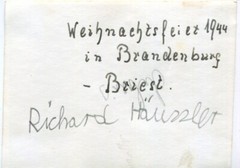 Weihnachtsfeier 1944
in Brandenburg
- Briest.
Richard Häussler